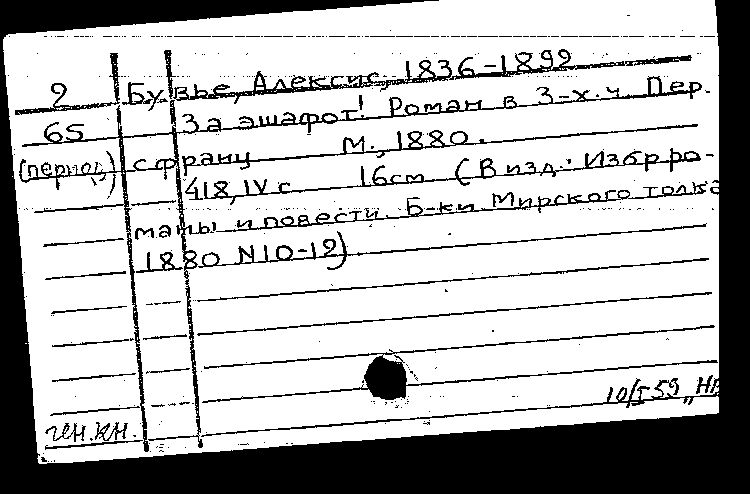 2 Бувье, Алексис, 1836-1892
65 За эшафот! Роман в 3-х.ч. Пер.
(период) с франц М., 1880.
418, IV с. 16см (В изд.: Избр ро-
маны и повести. Б-ки Мирского толка
1880 N10-12)
10/I 59 „НВ
ген.кн.